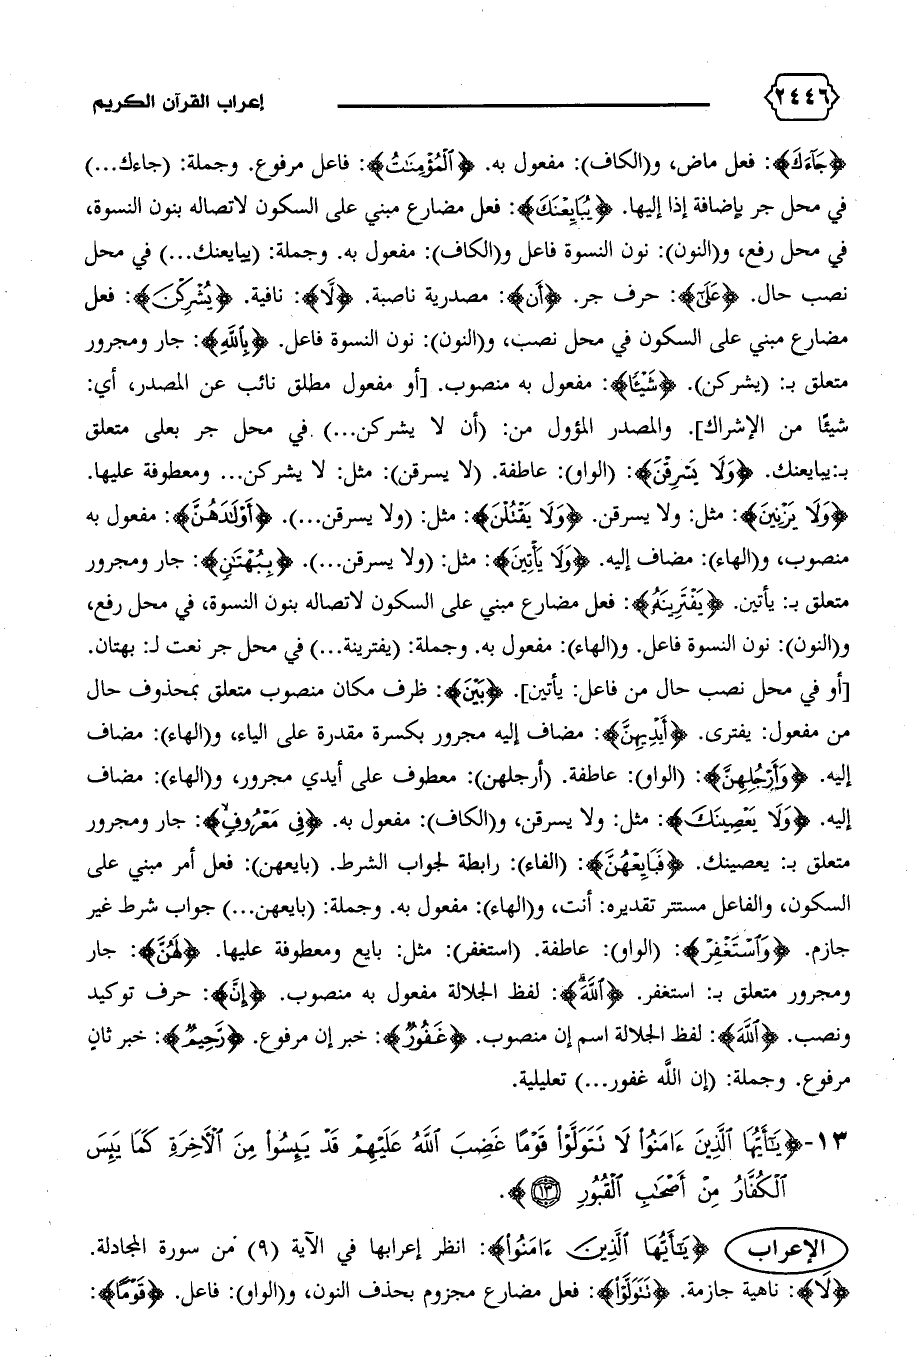 ٢٤٤٦ إعراب القرآن الكريم
﴿جَآءَكَ﴾: فعل ماض، و(الكاف): مفعول به. ﴿ٱلْمُؤْمِنَٰتُ﴾: فاعل مرفوع. وجملة: (جاءك...)
في محل جر بإضافة إذا إليها. ﴿يُبَايِعْنَكَ﴾: فعل مضارع مبني على السكون لاتصاله بنون النسوة،
في محل رفع، و(النون): نون النسوة فاعل و(الكاف): مفعول به. وجملة: (يبايعنك...) في محل
نصب حال. ﴿عَلَىٰٓ﴾: حرف جر. ﴿أَن﴾: مصدرية ناصبة. ﴿لَّا﴾: نافية. ﴿يُشْرِكْنَ﴾: فعل
مضارع مبني على السكون في محل نصب، و(النون): نون النسوة فاعل. ﴿بِٱللَّهِ﴾: جار ومجرور
متعلق بـ: (يشركن). ﴿شَيْـًٔا﴾: مفعول به منصوب. [أو مفعول مطلق نائب عن المصدر، أي:
شيئًا من الإشراك]. والمصدر المؤول من: (أن لا يشركن...) في محل جر بعلى متعلق
بـ:يبايعنك. ﴿وَلَا يَسْرِقْنَ﴾: (الواو): عاطفة. (لا يسرقن): مثل: لا يشركن... ومعطوفة عليها.
﴿وَلَا يَزْنِينَ﴾: مثل: ولا يسرقن. ﴿وَلَا يَقْتُلْنَ﴾: مثل: (ولا يسرقن...). ﴿أَوْلَٰدَهُنَّ﴾: مفعول به
منصوب، و(الهاء): مضاف إليه. ﴿وَلَا يَأْتِينَ﴾: مثل: (ولا يسرقن...). ﴿بِبُهْتَٰنٍ﴾: جار ومجرور
متعلق بـ: يأتين. ﴿يَفْتَرِينَهُۥ﴾: فعل مضارع مبني على السكون لاتصاله بنون النسوة، في محل رفع،
و(النون): نون النسوة فاعل. و(الهاء): مفعول به. وجملة: (يفترينة...) في محل جر نعت لـ: بهتان.
[أو في محل نصب حال من فاعل: يأتين]. ﴿بَيْنَ﴾: ظرف مكان منصوب متعلق بمحذوف حال
من مفعول: يفترى. ﴿أَيْدِيهِنَّ﴾: مضاف إليه مجرور بكسرة مقدرة على الياء، و(الهاء): مضاف
إليه. ﴿وَأَرْجُلِهِنَّ﴾: (الواو): عاطفة. (أرجلهن): معطوف على أيدي مجرور، و(الهاء): مضاف
إليه. ﴿وَلَا يَعْصِينَكَ﴾: مثل: ولا يسرقن، و(الكاف): مفعول به. ﴿فِى مَعْرُوفٍۙ﴾: جار ومجرور
متعلق بـ: يعصينك. ﴿فَبَايِعْهُنَّ﴾: (الفاء): رابطة لجواب الشرط. (بايعهن): فعل أمر مبني على
السكون، والفاعل مستتر تقديره: أنت، و(الهاء): مفعول به. وجملة: (بايعهن...) جواب شرط غير
جازم. ﴿وَٱسْتَغْفِرْ﴾: (الواو): عاطفة. (استغفر): مثل: بايع ومعطوفة عليها. ﴿لَهُنَّ﴾: جار
ومجرور متعلق بـ: استغفر. ﴿ٱللَّهَۖ﴾: لفظ الجلالة مفعول به منصوب. ﴿إِنَّ﴾: حرف توكيد
ونصب. ﴿ٱللَّهَ﴾: لفظ الجلالة اسم إن منصوب. ﴿غَفُورٌ﴾: خبر إن مرفوع. ﴿رَّحِيمٌ﴾: خبر ثانٍ
مرفوع. وجملة: (إن اللَّه غفور...) تعليلية.
١٣-﴿يَٰٓأَيُّهَا ٱلَّذِينَ ءَامَنُوا۟ لَا تَتَوَلَّوْا۟ قَوْمًا غَضِبَ ٱللَّهُ عَلَيْهِمْ قَدْ يَئِسُوا۟ مِنَ ٱلْـَٔاخِرَةِ كَمَا يَئِسَ
ٱلْكُفَّارُ مِنْ أَصْحَٰبِ ٱلْقُبُورِ ١٣﴾.
الإعراب ﴿يَٰٓأَيُّهَا ٱلَّذِينَ ءَامَنُوا۟﴾: انظر إعرابها في الآية (٩) من سورة المجادلة.
﴿لَا﴾: ناهية جازمة. ﴿تَتَوَلَّوْا۟﴾: فعل مضارع مجزوم بحذف النون، و(الواو): فاعل. ﴿قَوْمًا﴾: